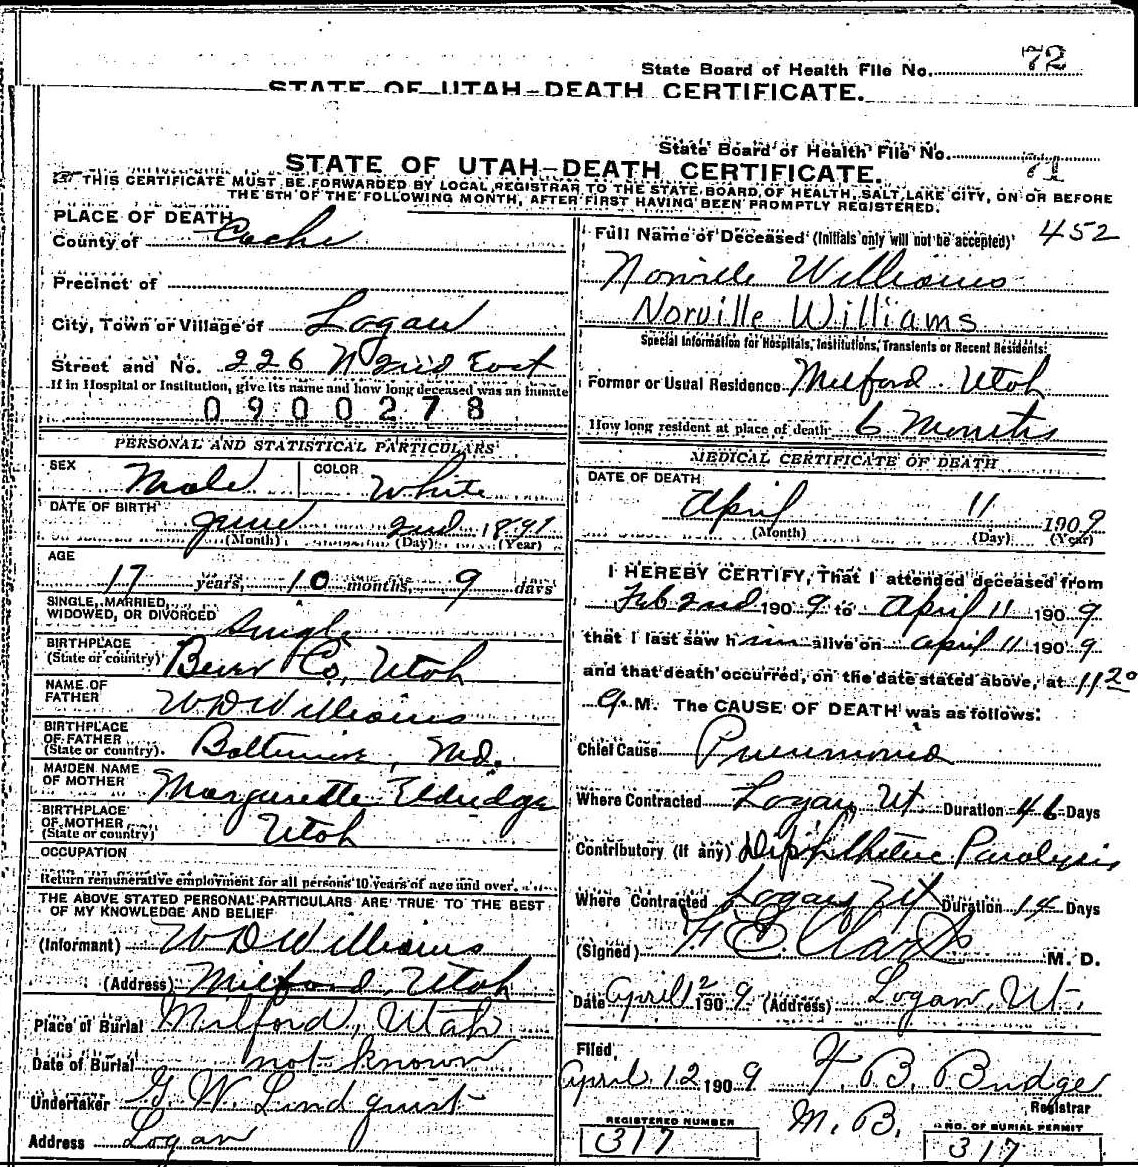 State Board of Health File No. 72
STATE OF UTAH—DEATH CERTIFICATE.
State Board of Health File No. 71
STATE OF UTAH—DEATH CERTIFICATE.
THIS CERTIFICATE MUST BE FORWARDED BY LOCAL REGISTRAR TO THE STATE BOARD OF HEALTH, SALT LAKE CITY, ON OR BEFORE
THE 5TH OF THE FOLLOWING MONTH, AFTER FIRST HAVING BEEN PROMPTLY REGISTERED.
PLACE OF DEATH
County of Cache
Precinct of
City, Town or Village of Logan
Street and No. 226 N 2nd East
If in Hospital or Institution, give its name and how long deceased was an inmate
0900278
PERSONAL AND STATISTICAL PARTICULARS
SEX Male COLOR White
DATE OF BIRTH June 2nd 1891
(Month) (Day) (Year)
AGE
17 years, 10 months, 9 days
SINGLE, MARRIED,
WIDOWED, OR DIVORCED Single
BIRTHPLACE
(State or country) Bever Co, Utah
NAME OF
FATHER W D Williams
BIRTHPLACE
OF FATHER
(State or country). Baltimore, Md.
MAIDEN NAME
OF MOTHER Margurette Eldredge
BIRTHPLACE
OF MOTHER
(State or country) Utah
OCCUPATION
Return remunerative employment for all persons 10 years of age and over.
THE ABOVE STATED PERSONAL PARTICULARS ARE TRUE TO THE BEST
OF MY KNOWLEDGE AND BELIEF
(Informant) W D Williams
(Address) Milford, Utah
Place of Burial Milford, Utah
Date of Burial not known
Undertaker G. W. Lindquist
Address Logan
Full Name of Deceased (Initials only will not be accepted) 452
Norville Williams
Norville Williams
Special Information for Hospitals, Institutions, Transients or Recent Residents:
Former or Usual Residence Milford Utah
How long resident at place of death 6 Months
MEDICAL CERTIFICATE OF DEATH
DATE OF DEATH
April 11 1909
(Month) (Day) (Year)
I HEREBY CERTIFY, That I attended deceased from
Feb 2nd 1909 to April 11 1909
that I last saw him alive on april 11 1909
and that death occurred, on the date stated above, at 11 20
a. M. The CAUSE OF DEATH was as follows:
Chief Cause Pneumonia
Where Contracted Logan, Ut Duration 46 Days
Contributory (if any) Diphtheric Paralysis
Where Contracted Logan Ut Duration 14 Days
(Signed) M. D.
Date April 12 1909 (Address) Logan, Ut.
Filed,
April 12 1909 F. B. Budge
Registrar
M. B.
REGISTERED NUMBER
317
NO. OF BURIAL PERMIT
317